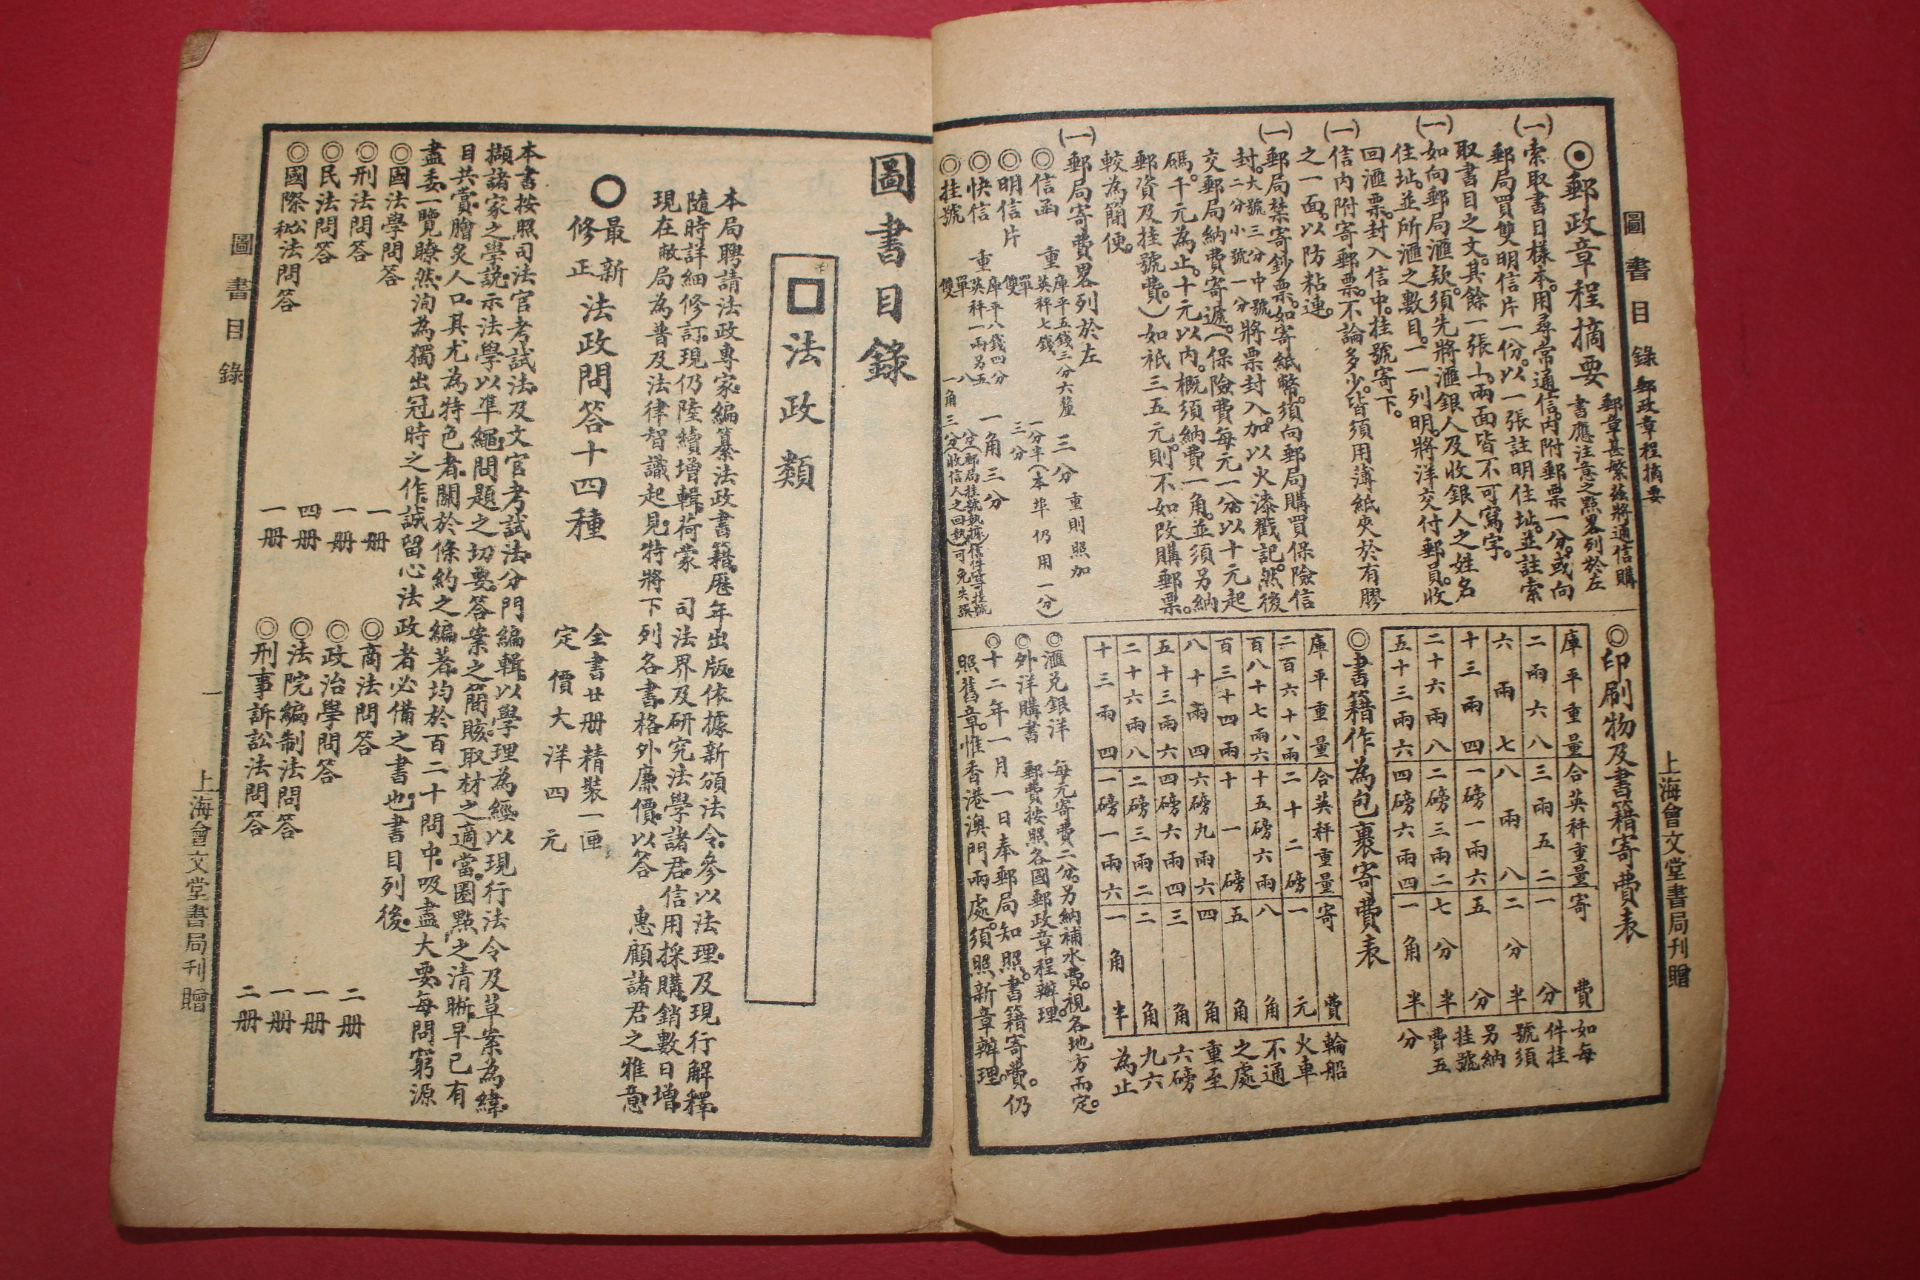 圖書目錄 郵政章程摘要
上海會文堂書局刊贈
◉郵政章程摘要 郵章甚繁茲將通信購
書應注意之點畧列於左
(一)索取書目樣本用尋常通信內附郵票一分或向
郵局買雙明信片一份以一張註明住址並註索
取書目之文其餘一張上兩面皆不可寫字
(一)如向郵局滙欵須先將滙銀人及收銀人之姓名
住址並所滙之數目一一列明將洋交付郵員收
回滙票封入信中挂號寄下
(一)信內附寄郵票不論多少皆須用薄紙夾於有膠
之一面以防粘連
(一)郵局禁寄鈔票如寄紙幣須向郵局購買保險信
封大號三分中號二分小號一分將票封入加以火漆戳記然後
交郵局納費寄遞(保險費每元一分以十元起
碼千元為止十元以內概須納費一角並須另納
郵資及挂號費)如祇三五元則不如改購郵票
較為簡便
(一)郵局寄費畧列於左
◎信函 重庫平五錢三分六釐英秤七錢 三分 重則照加
◎明信片 單雙 一分半(本埠仍用一分)三分
◎快信 重庫平八錢四分英秤一兩另五 一角三分
◎挂號 單雙
◎印刷物及書籍寄費表
庫平重量 合英秤重量 寄費
二兩六八 三兩五二 一分
六兩七 八兩八 二分半
十三兩四 一磅一兩六 五分
二十六兩八 二磅三兩二 七分半
五十三兩六 四磅六兩四 一角半
如每件挂號須另納挂號費五分
◎書籍作為包裹寄費表
庫平重量 合英秤重量 寄費
二百六十八兩 二十二磅 一元
百八十七兩六 十五磅六兩 八角
百三十四兩 十一磅 五角
八十兩四 六磅九兩六 四角
五十三兩六 四磅六兩四 三角
二十六兩八 二磅三兩二 二角
十三兩四 一磅一兩六 一角半
輪船火車不通之處重至六磅九六為止
◎滙兌銀洋 每元寄費二分另納補水費視各地方而定
◎外洋購書 郵費按照各國郵政章程辦理
◎十二年一月一日奉郵局知照書籍寄費仍
照舊章惟香港澳門兩處須照新章辦理
圖書目錄
□法政類
本局聘請法政專家編纂法政書籍歷年出版依據新頒法令參以法理及現行解釋
隨時詳細修訂現仍陸續增輯荷蒙 司法界及研究法學諸君信用採購銷數日增
現在敝局為普及法律智識起見特將下列各書格外廉價以答 惠顧諸君之雅意
○最新修正法政問答十四種 全書廿册精裝一匣
定價大洋四元
本書按照司法官考試法及文官考試法分門編輯以學理為經以現行法令及草案為緯
擷諸家之學說示法學以準繩問題之切要答案之簡賅取材之適當圈點之清晰早已有
目共賞膾炙人口其尤為特色者關於條約之編著均於百二十問中吸盡大要每問窮源
盡委一覽瞭然洵為獨出冠時之作誠留心法政者必備之書也書目列後
◎國法學問答 一册 ◎商法問答 二册
◎刑法問答 一册 ◎政治學問答 一册
◎民法問答 四册 ◎法院編制法問答 一册
◎國際私法問答 一册 ◎刑事訴訟法問答 二册
圖書目錄
一
上海會文堂書局刊贈